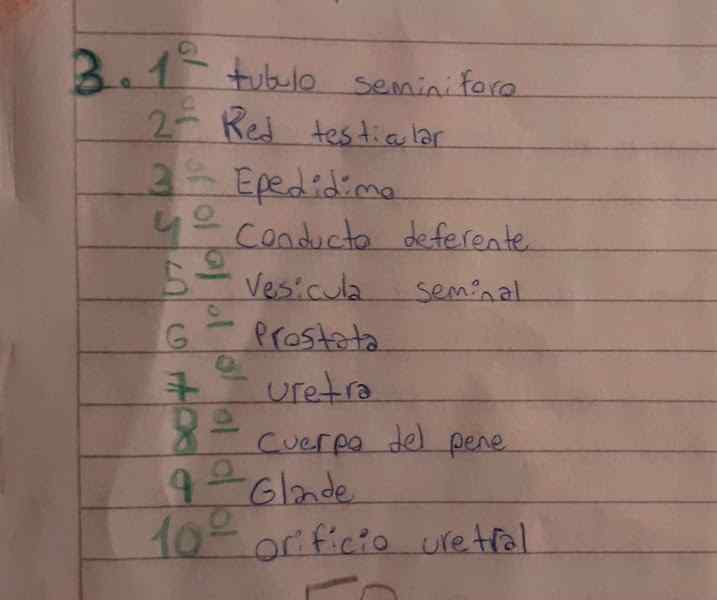 3. 1º tubulo seminiforo
2º Red testicular
3º Epedidimo
4º Conducto deferente
5º Vesicula seminal
6º Prostata
7º uretra
8º cuerpo del pene
9º Glande
10º orificio uretral